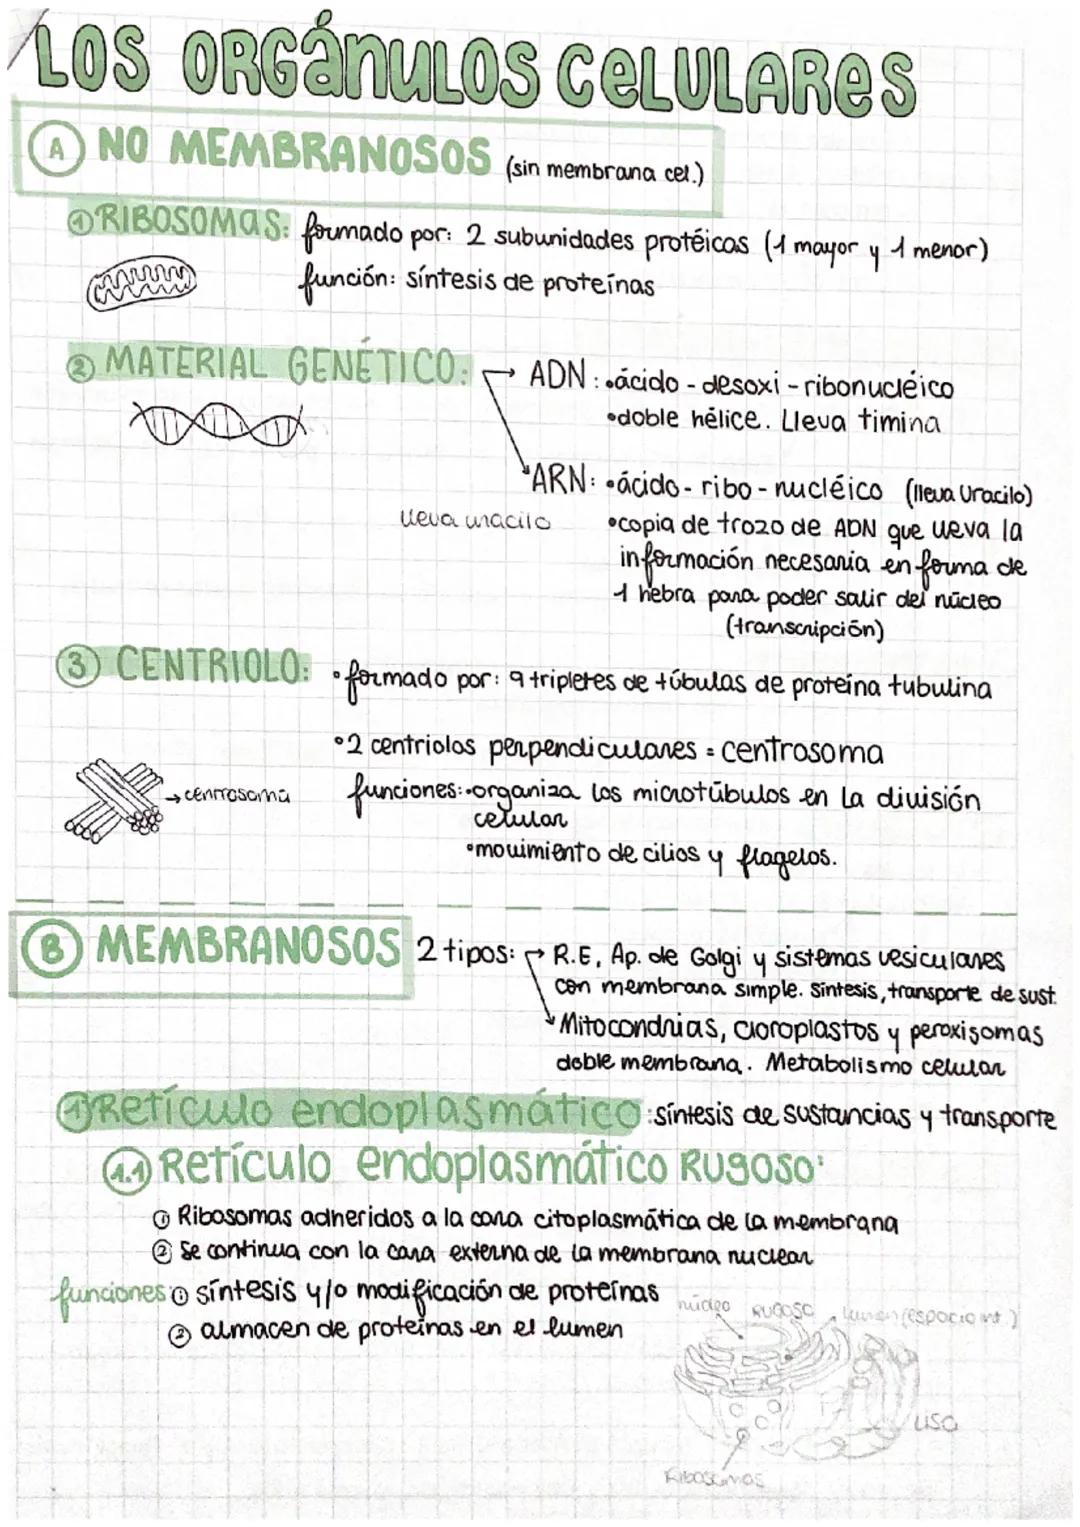 LOS ORGÁNULOS CELULARES
A NO MEMBRANOSOS (sin membrana cel.)
① RIBOSOMAS: formado por: 2 subunidades protéicas (1 mayor y 1 menor)
función: síntesis de proteínas
② MATERIAL GENÉTICO: → ADN: •ácido - desoxi - ribonucléico
•doble hélice. Lleva timina
ARN: •ácido - ribo - nucléico (lleva Uracilo)
lleva uracilo •copia de trozo de ADN que lleva la
información necesaria en forma de
1 hebra para poder salir del núcleo
(transcripción)
③ CENTRIOLO: •formado por: 9 tripletes de túbulas de proteína tubulina
•2 centriolos perpendiculares = centrosoma
→ centrosoma funciones: •organiza los microtúbulos en la división
celular
•movimiento de cilios y flagelos.
B MEMBRANOSOS 2 tipos: → R.E, Ap. de Golgi y sistemas vesiculares
con membrana simple. síntesis, transporte de sust.
Mitocondrias, cloroplastos y peroxisomas
doble membrana. Metabolismo celular
① Retículo endoplasmático: síntesis de sustancias y transporte
1.1 Retículo endoplasmático Rugoso:
① Ribosomas adheridos a la cara citoplasmática de la membrana
② Se continua con la cara externa de la membrana nuclear
funciones ① síntesis y/o modificación de proteínas
② almacen de proteínas en el lumen
núcleo RUGOSO lumen (espacio int.)
LISO
Ribosomas